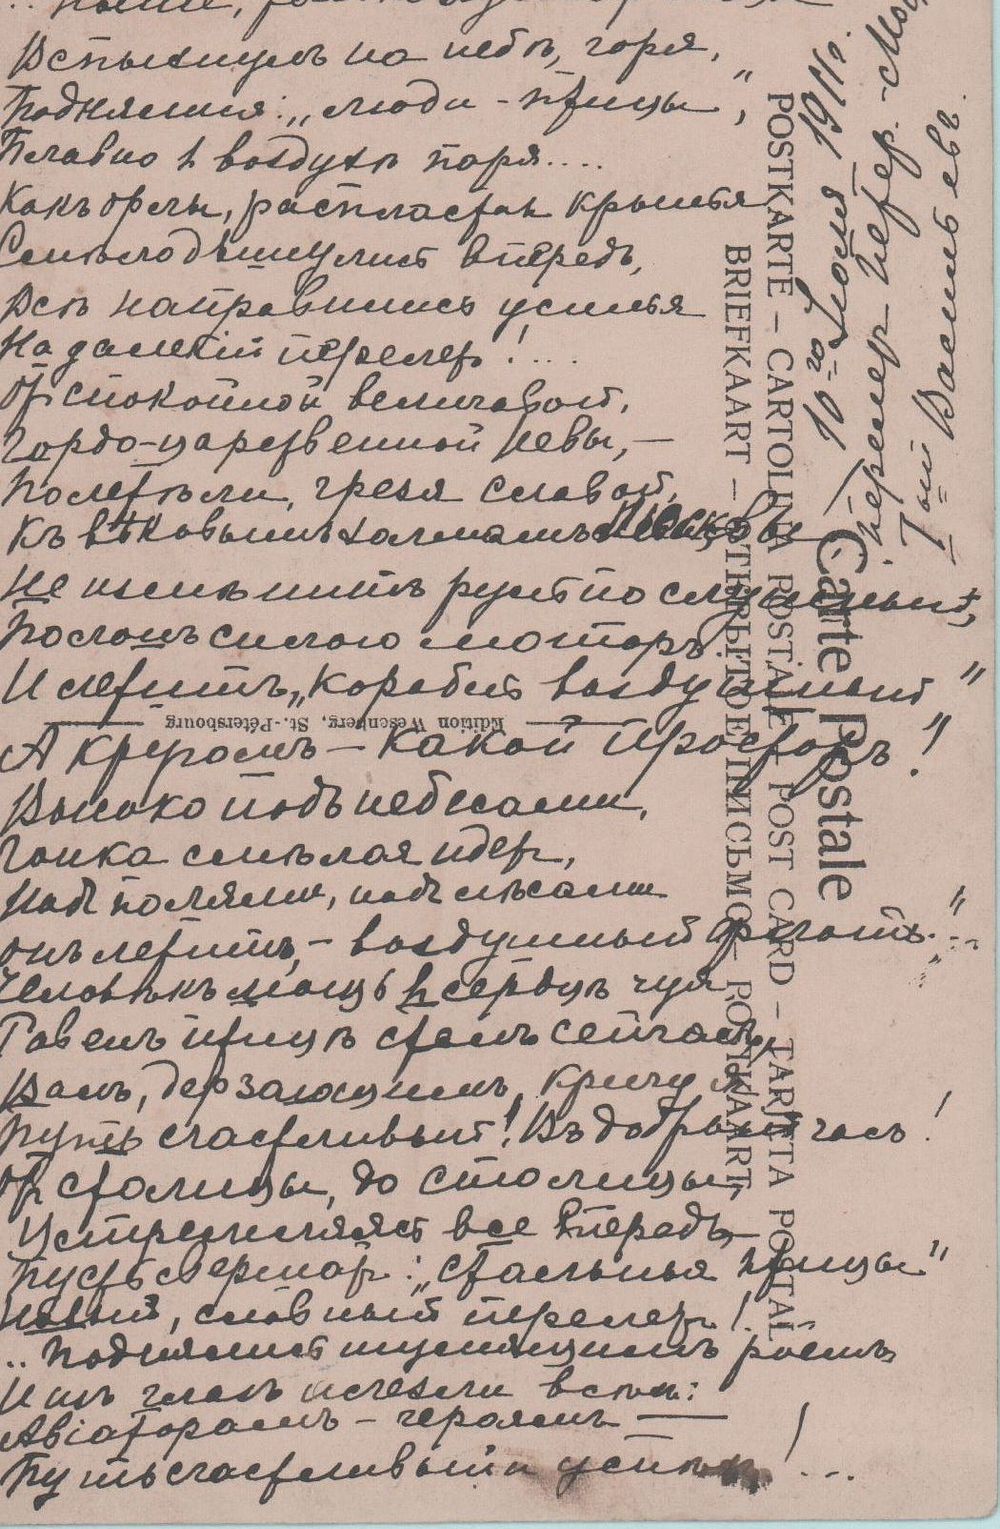 Вспыхнулъ на небѣ, горя,
Поднялись: „люди - птицы“,
Плавно въ воздухѣ паря....
Какъ орлы, распластавъ крылья
Смѣло двинулись впередъ,
Всѣ направились усилья
На далекій перелетъ!....
Отъ спокойной величавой,
Гордо-царственной Невы, —
Полетѣли, грезя славой,
Къ вѣковымъ холмамъ Москвы
Не измѣнитъ руль послушный,
Полонъ силою моторъ!
И летитъ „корабль воздушный“
А кругомъ — какой просторъ!
Высоко подъ небесами,
Гонка смѣлая идетъ,
Надъ полями, надъ лѣсами
Онъ летитъ, - воздушный флотъ...
Человѣкъ мощь въ сердцѣ чуя,
Равенъ птицѣ сталъ сейчасъ,
Вамъ, дерзающимъ, кричу я
Путь счастливый! Въ добрый часъ!
Отъ столицы, до столицы,
Устремляясь все впередъ —
Пусть свершатъ: „стальныя птицы“
Новый, славный перелетъ!
.. Поднялись шумящимъ роемъ
И изъ глазъ исчезли всѣ:
Авіаторамъ - героямъ —
Путь счастливый и успѣхъ!...
10-го Іюля 1911 г.
перелетъ Петер.-Мос
Васильевъ.
Carte Postale
POSTKARTE – CARTOLINA POSTALE – POST CARD – TARJETA POSTAL
BRIEFKAART – ОТКРЫТОЕ ПИСЬМО –
Edition Wesenberg, St.-Pétersbourg